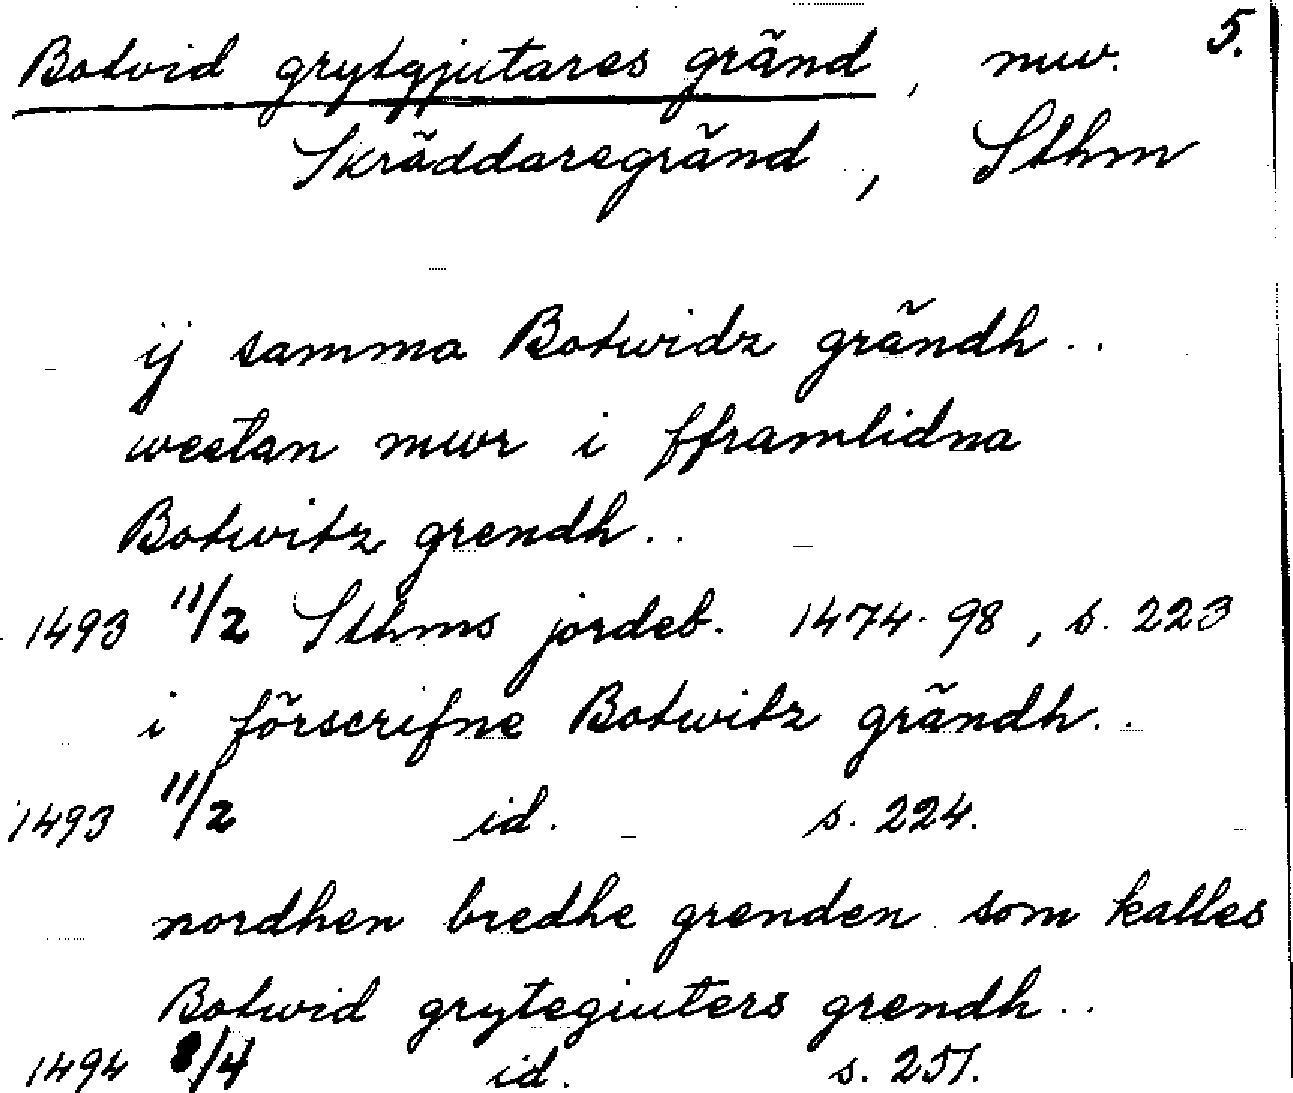 Botvid grytgjutares gränd, nuv. 5.
Skräddaregränd, Sthm
ij samma Botwidz grändh..
westan mwr i fframlidna
Botwitz grendh..
1493 11/2 Sthms jordeb. 1474-98, s. 223
i förscrifne Botwitz grändh..
1493 11/2 id. s. 224.
nordhen bredhe grenden som kalles
Botwid grytegiuters grendh..
1494 8/4 id. s. 251.